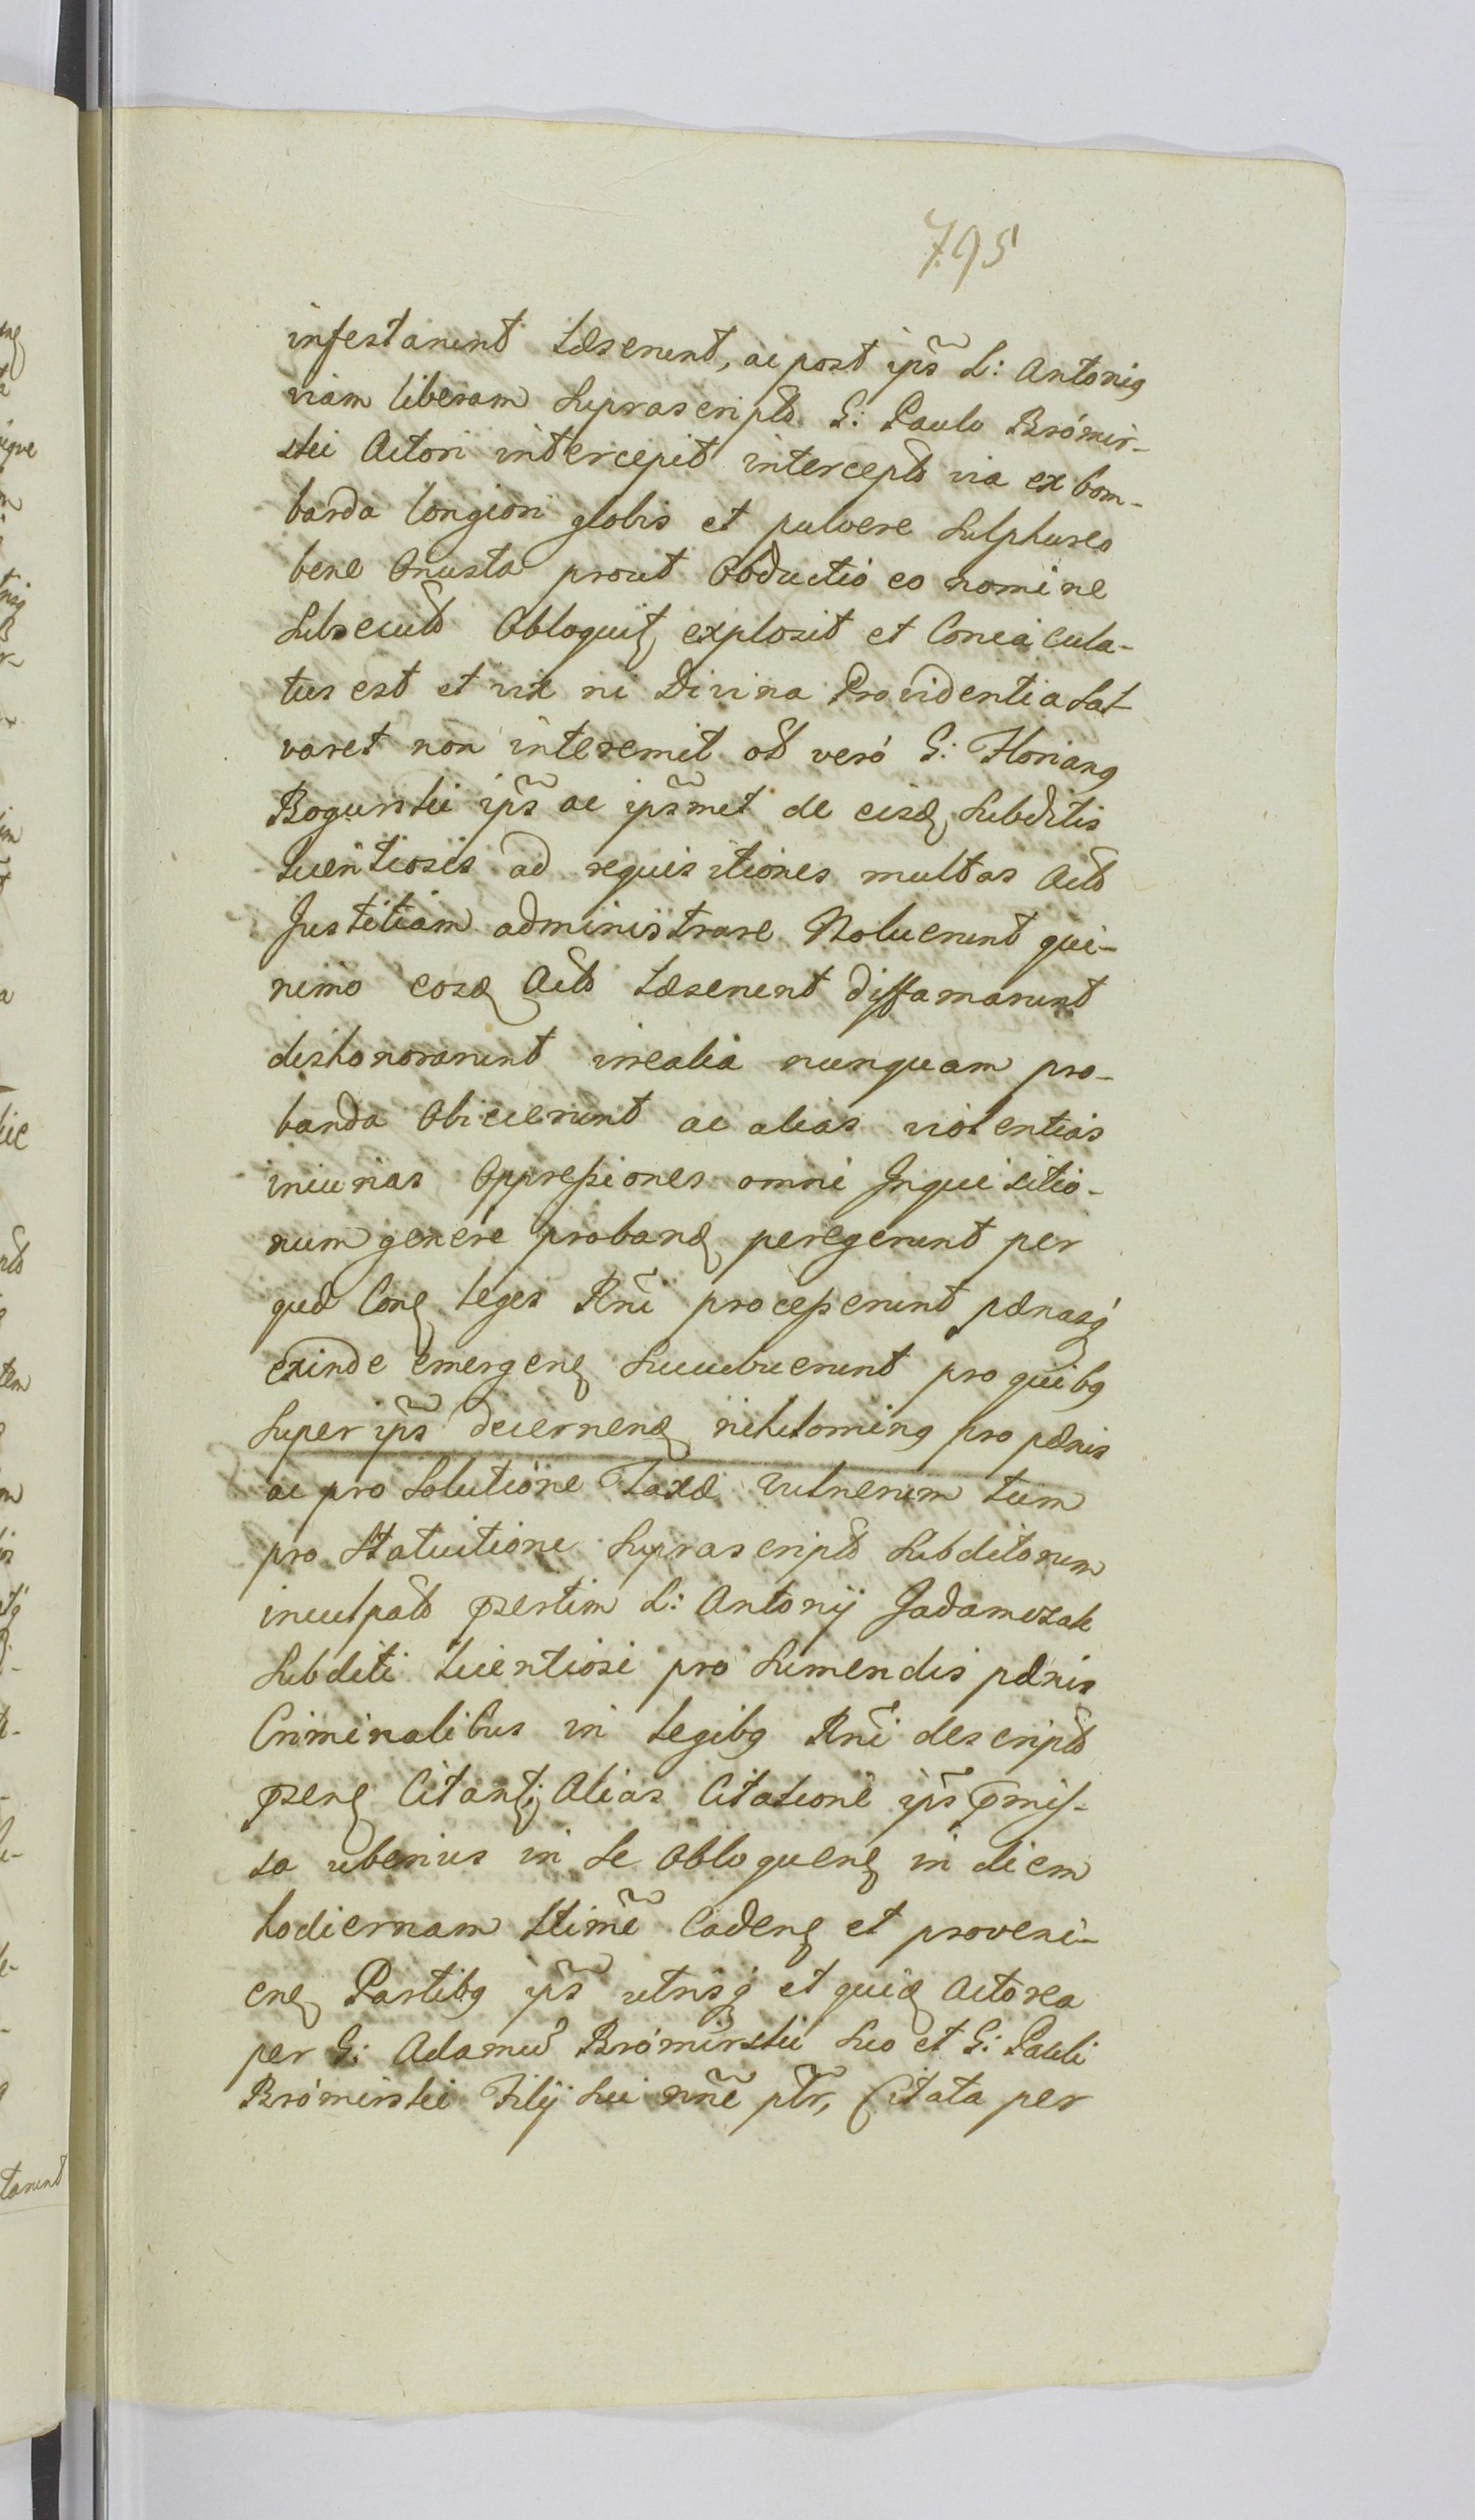 795
infestarunt Læserunt, ac post ips̃ L: Antonig
viam liberam Suprascript̃ G: Paulo Brómir-
skii Actori intercepit intercepta via ex bom-
barda longiori globis et pulvere Sulphureo
bene Onusta prout Obductio eo nomine
Subsecuta Obloquit, explosit et Coniacula-
tus est et vix ni Divina Providentia Sal-
varet non interemit ast veró G: Floriang
Bogurskii ips̃ ac ips̃met de eisd, Subditis
Licentiosis ad requisitiones multas Act̃
Justitiam administrare Noluerunt qui-
nimo eosd Act̃ Læserunt diffamarunt
dishonorarunt irrealia nunquam pro-
banda Obiecerunt ac alias violentias
iniurias Oppressiones omni Inquisitio-
num genere proband peregerunt per
quæ Con Leges Rñi processerunt pænasq
exinde emergen Succubuerunt pro quibg
Super ips̃ decernend nihiloming pro pænis
ac pro Solutione Taxæ Vulnerum tum
pro Statuitione Suprascript̃ Subditorum
inculpat̃ psertim L: Antonij Jadamczak
Subditi Licentiosi pro Sumendis pænis
Criminalibus in Legibg Rñi descript̃
psen Citant; Alias Citatione ips̃ pmis-
sa uberius in Se obloquen in diem
hodiernam Stime Caden et proveni-
en Partibg ips̃ utrisq et quid Actorea
per G: Adamũ Brómirskii Suo et G: Pauli
Brómirskii Filij Sui nñe ptr, Citata per